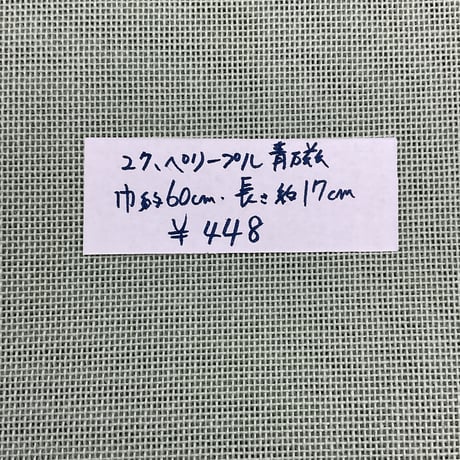 27、ペリープル 青磁
巾約60cm.長さ約17cm
¥448